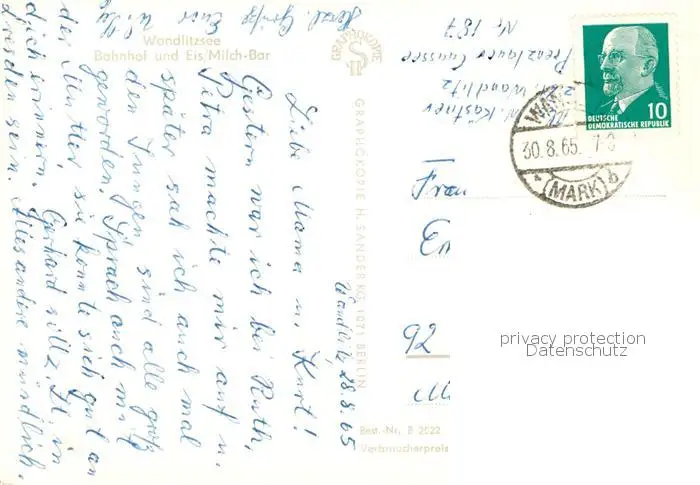 Wandlitzsee
Bahnhof und Eis/Milch-Bar
GRAPHOKOPIE
GRAPHOKOPIE H. SANDER KG, 1071 BERLIN
Best.-Nr. B 2522
Verbraucherpreis
Wandlitz, 28.8.65
Liebe Mama u. Kurt!
Gestern war ich bei Ruth,
Petra machte mir auf u.
später sah ich auch mal
den Jungen, sind alle groß
geworden. Sprach auch mit
der Mutter, sie konnte sich gut an
dich erinnern. Gerhard soll z. Zt. in
Dresden sein. Alles andere mündlich.
Herzl. Grüße Euer Willy
W. Kästner
Wandlitz
Prenzlauer Caussee
Nr. 187
10
DEUTSCHE
DEMOKRATISCHE REPUBLIK
WAND
30.8.65
(MARK)
b
Frau
92
privacy protection
Datenschutz